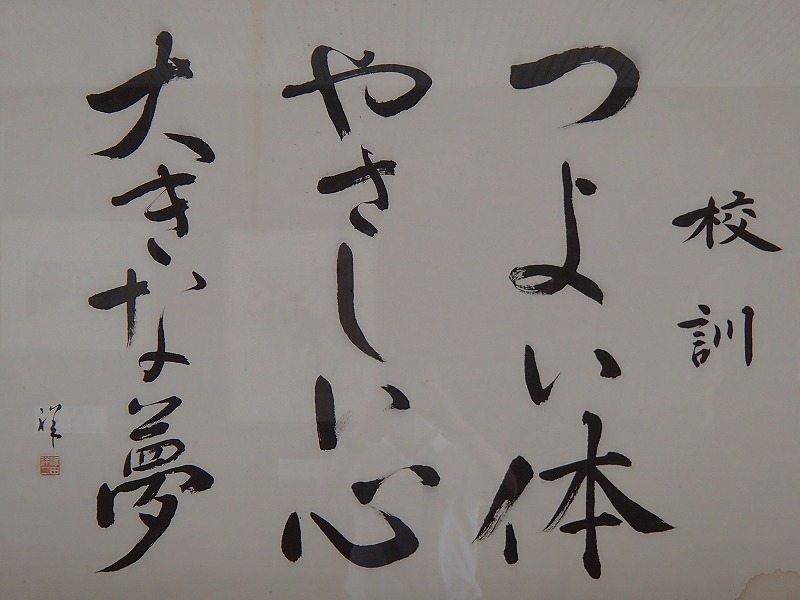 校訓
つよい体
やさしい心
大きな夢
祥